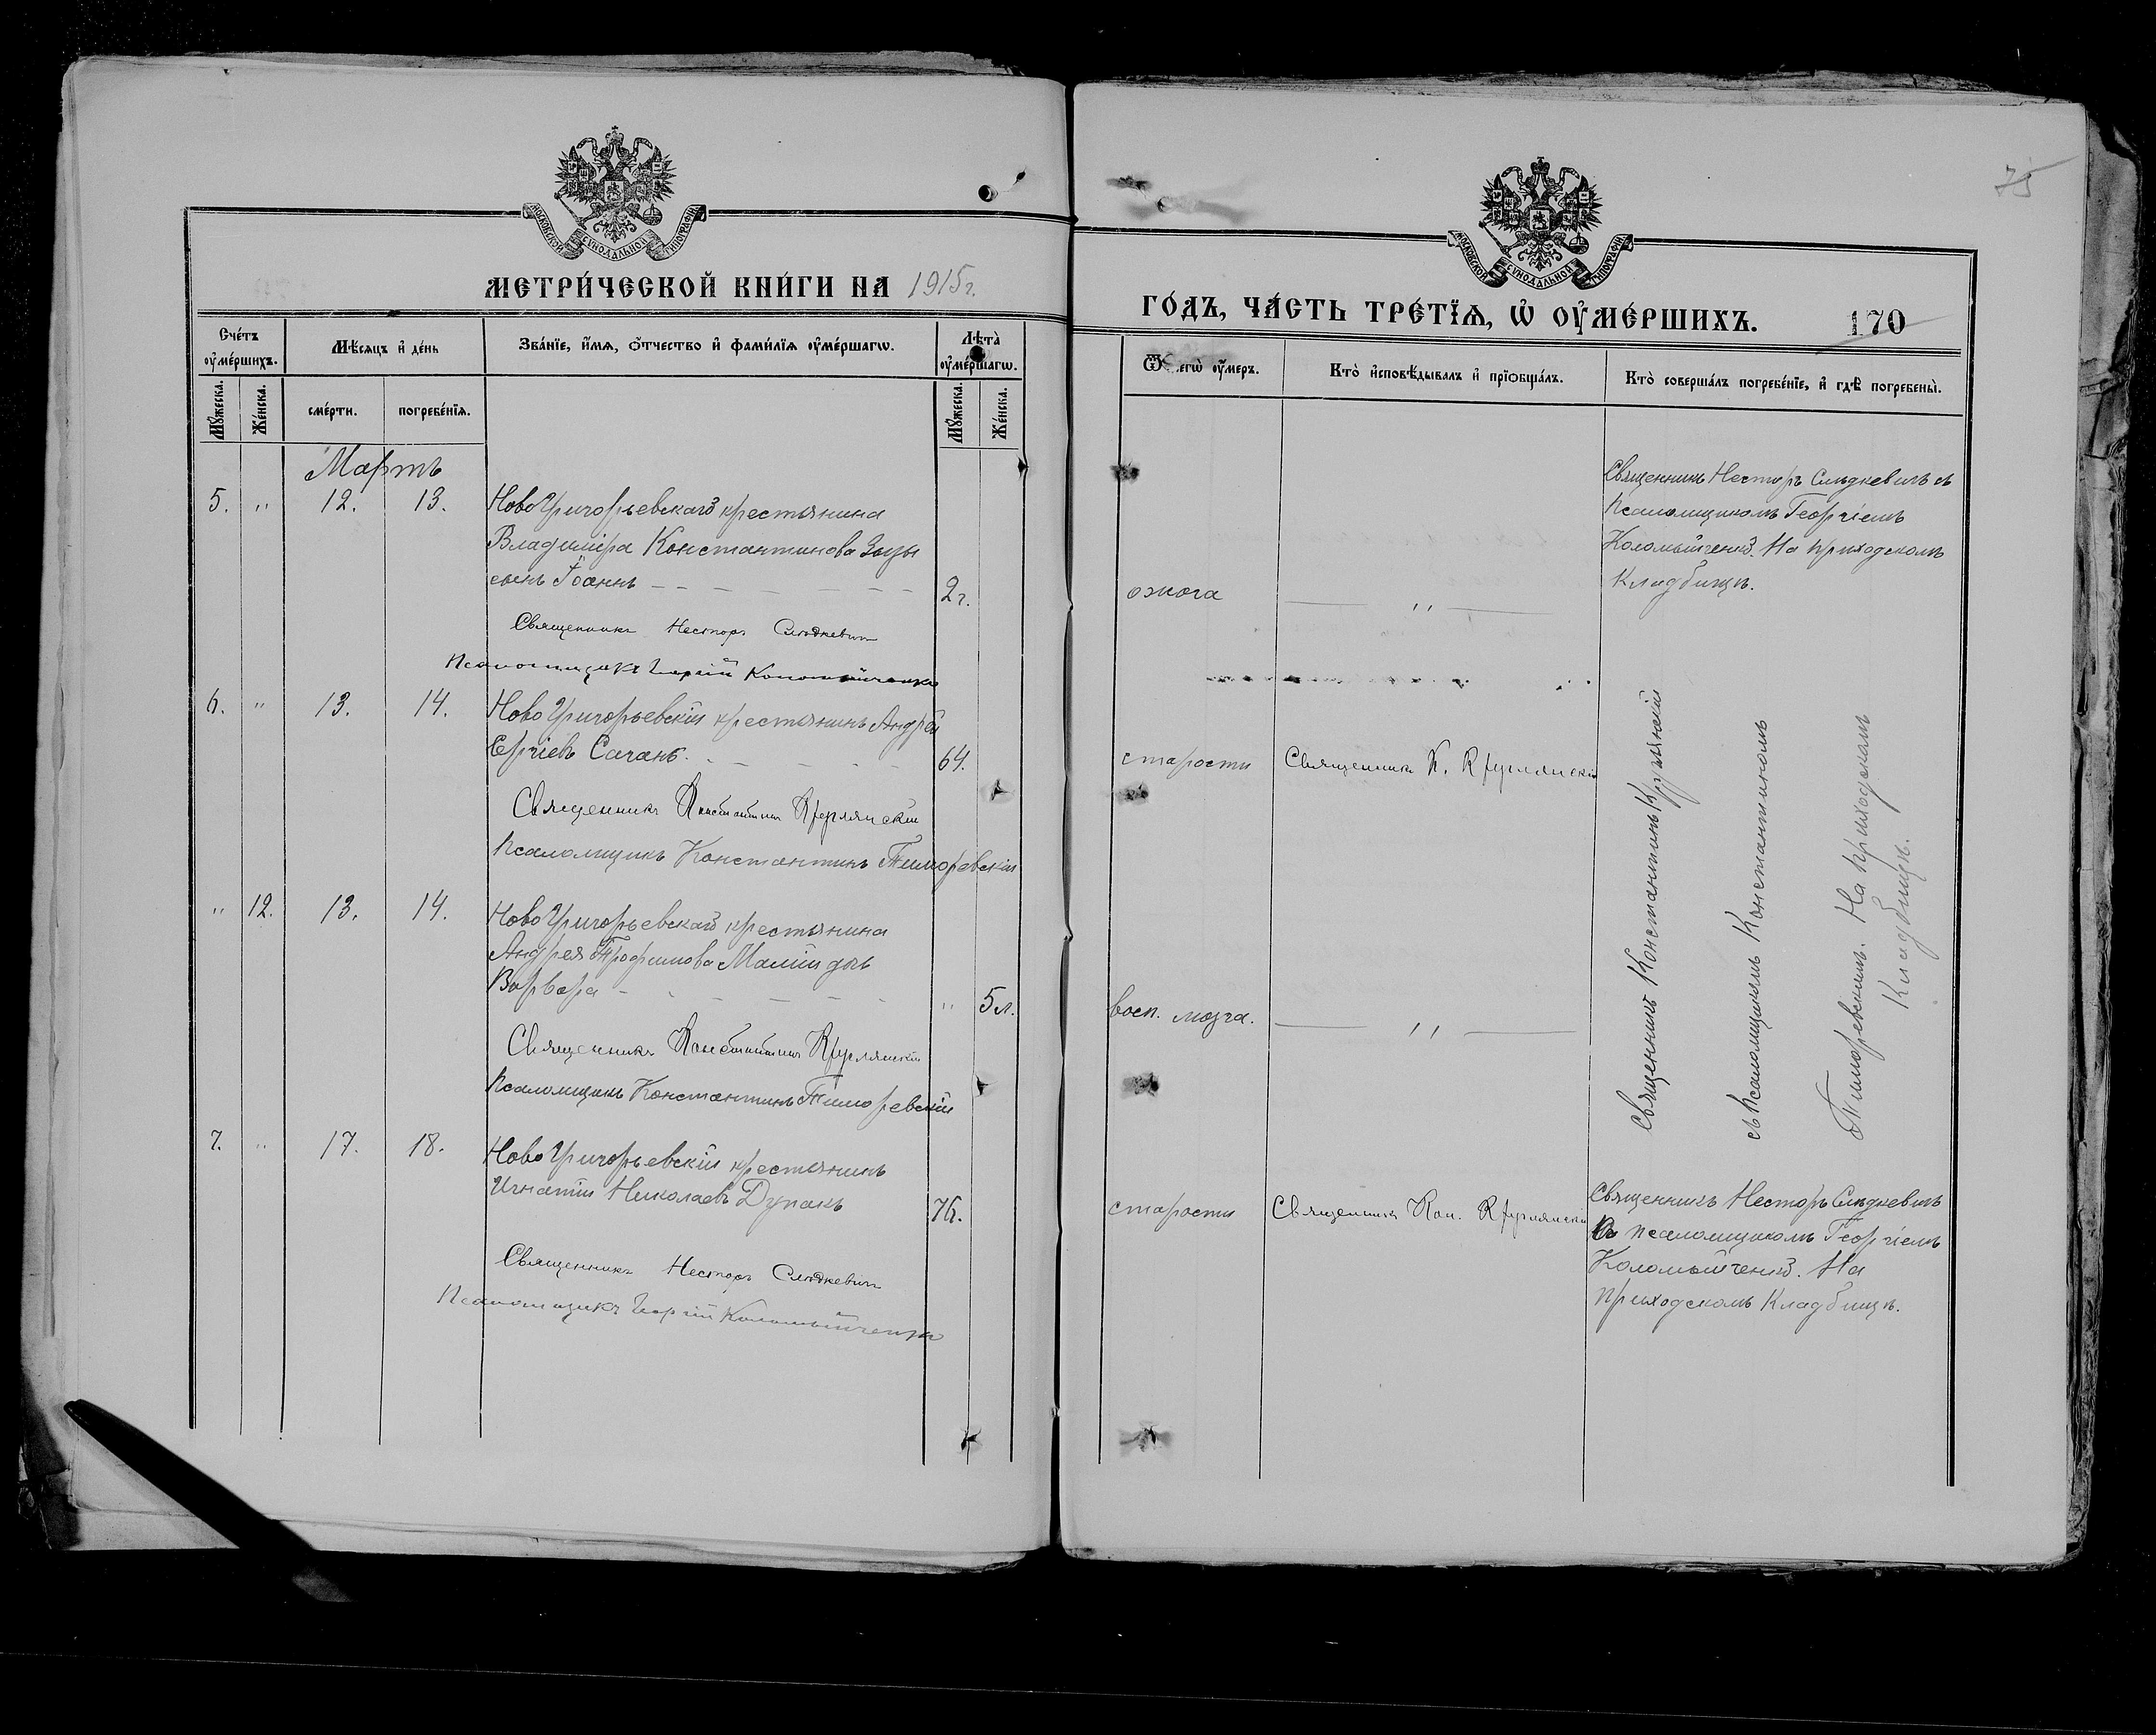 МОСКОВСКОЙ СѴНОДАЛЬНОЙ ТИПОГРАФІИ
МЕТРИ́ЧЕСКОЙ КНИ́ГИ НА 1915 г.
Сче́тъ ᲂу҆ме́ршихъ.
Мѣ́сяцъ и҆ де́нь
Зва́нїе, и҆́мя, ѻ҆́тчество и҆ фами́лїя ᲂу҆ме́ршагѡ.
Лѣта̀ ᲂу҆ме́ршагѡ.
Мꙋ́жеска.
Же́нска.
сме́рти.
погребе́нїя.
Мꙋ́жеска.
Же́нска.
Мартъ
5. " 12. 13. Ново Григорьевскаго крестьянина
Владиміра Константинова Зозы
сынъ Іоаннъ 2 г.
Священникъ Несторъ Слѣдкевичъ
Псаломщикъ Георгій Коломыйченко
6. " 13. 14. Ново Григорьевскій крестьянинъ Андрей
Ергіевъ Саганъ. 64.
Священникъ Константинъ Круглянскій
Псаломщикъ Константинъ Тиморевскій
" 12. 13. 14. Ново Григорьевскаго крестьянина
Андрея Трофимова дочь
Варвара " 5 л.
Священникъ Константинъ Круглянскій
Псаломщикъ Константинъ Тиморевскій
7. " 17. 18. Ново Григорьевскій крестьянинъ
Игнатій Николаевъ Дупакъ 76.
Священникъ Несторъ Слѣдкевичъ
Псаломщикъ Георгій Коломыйченко
75
МОСКОВСКОЙ СѴНОДАЛЬНОЙ ТИПОГРАФІИ
ГО́ДЪ, ЧА́СТЬ ТРЕ́ТЇЯ, Ѡ҆ ОУ҆МЕ́РШИХЪ.
170
егѡ̀ ᲂу҆́меръ.
Кто̀ и҆сповѣ́дывалъ и҆ прїѻбща́лъ.
Кто̀ соверша́лъ погребе́нїе, и҆ гдѣ̀ погребены̀.
ожога
"
Священникъ Несторъ Слѣдкевичъ съ
Псаломщикомъ Георгіемъ
Коломыйченко. На приходскомъ
Кладбищѣ.
старости Священникъ К. Круглянскій
Священникъ Константинъ Круглянскій
съ Псаломщикомъ Константиномъ
Тиморевскимъ. На приходскомъ
Кладбищѣ.
восп. мозга. "
старости Священникъ Кон. Круглянскій
Священникъ Несторъ Слѣдкевичъ
съ псаломщикомъ Георгіемъ
Коломыйченко. На
приходскомъ Кладбищѣ.